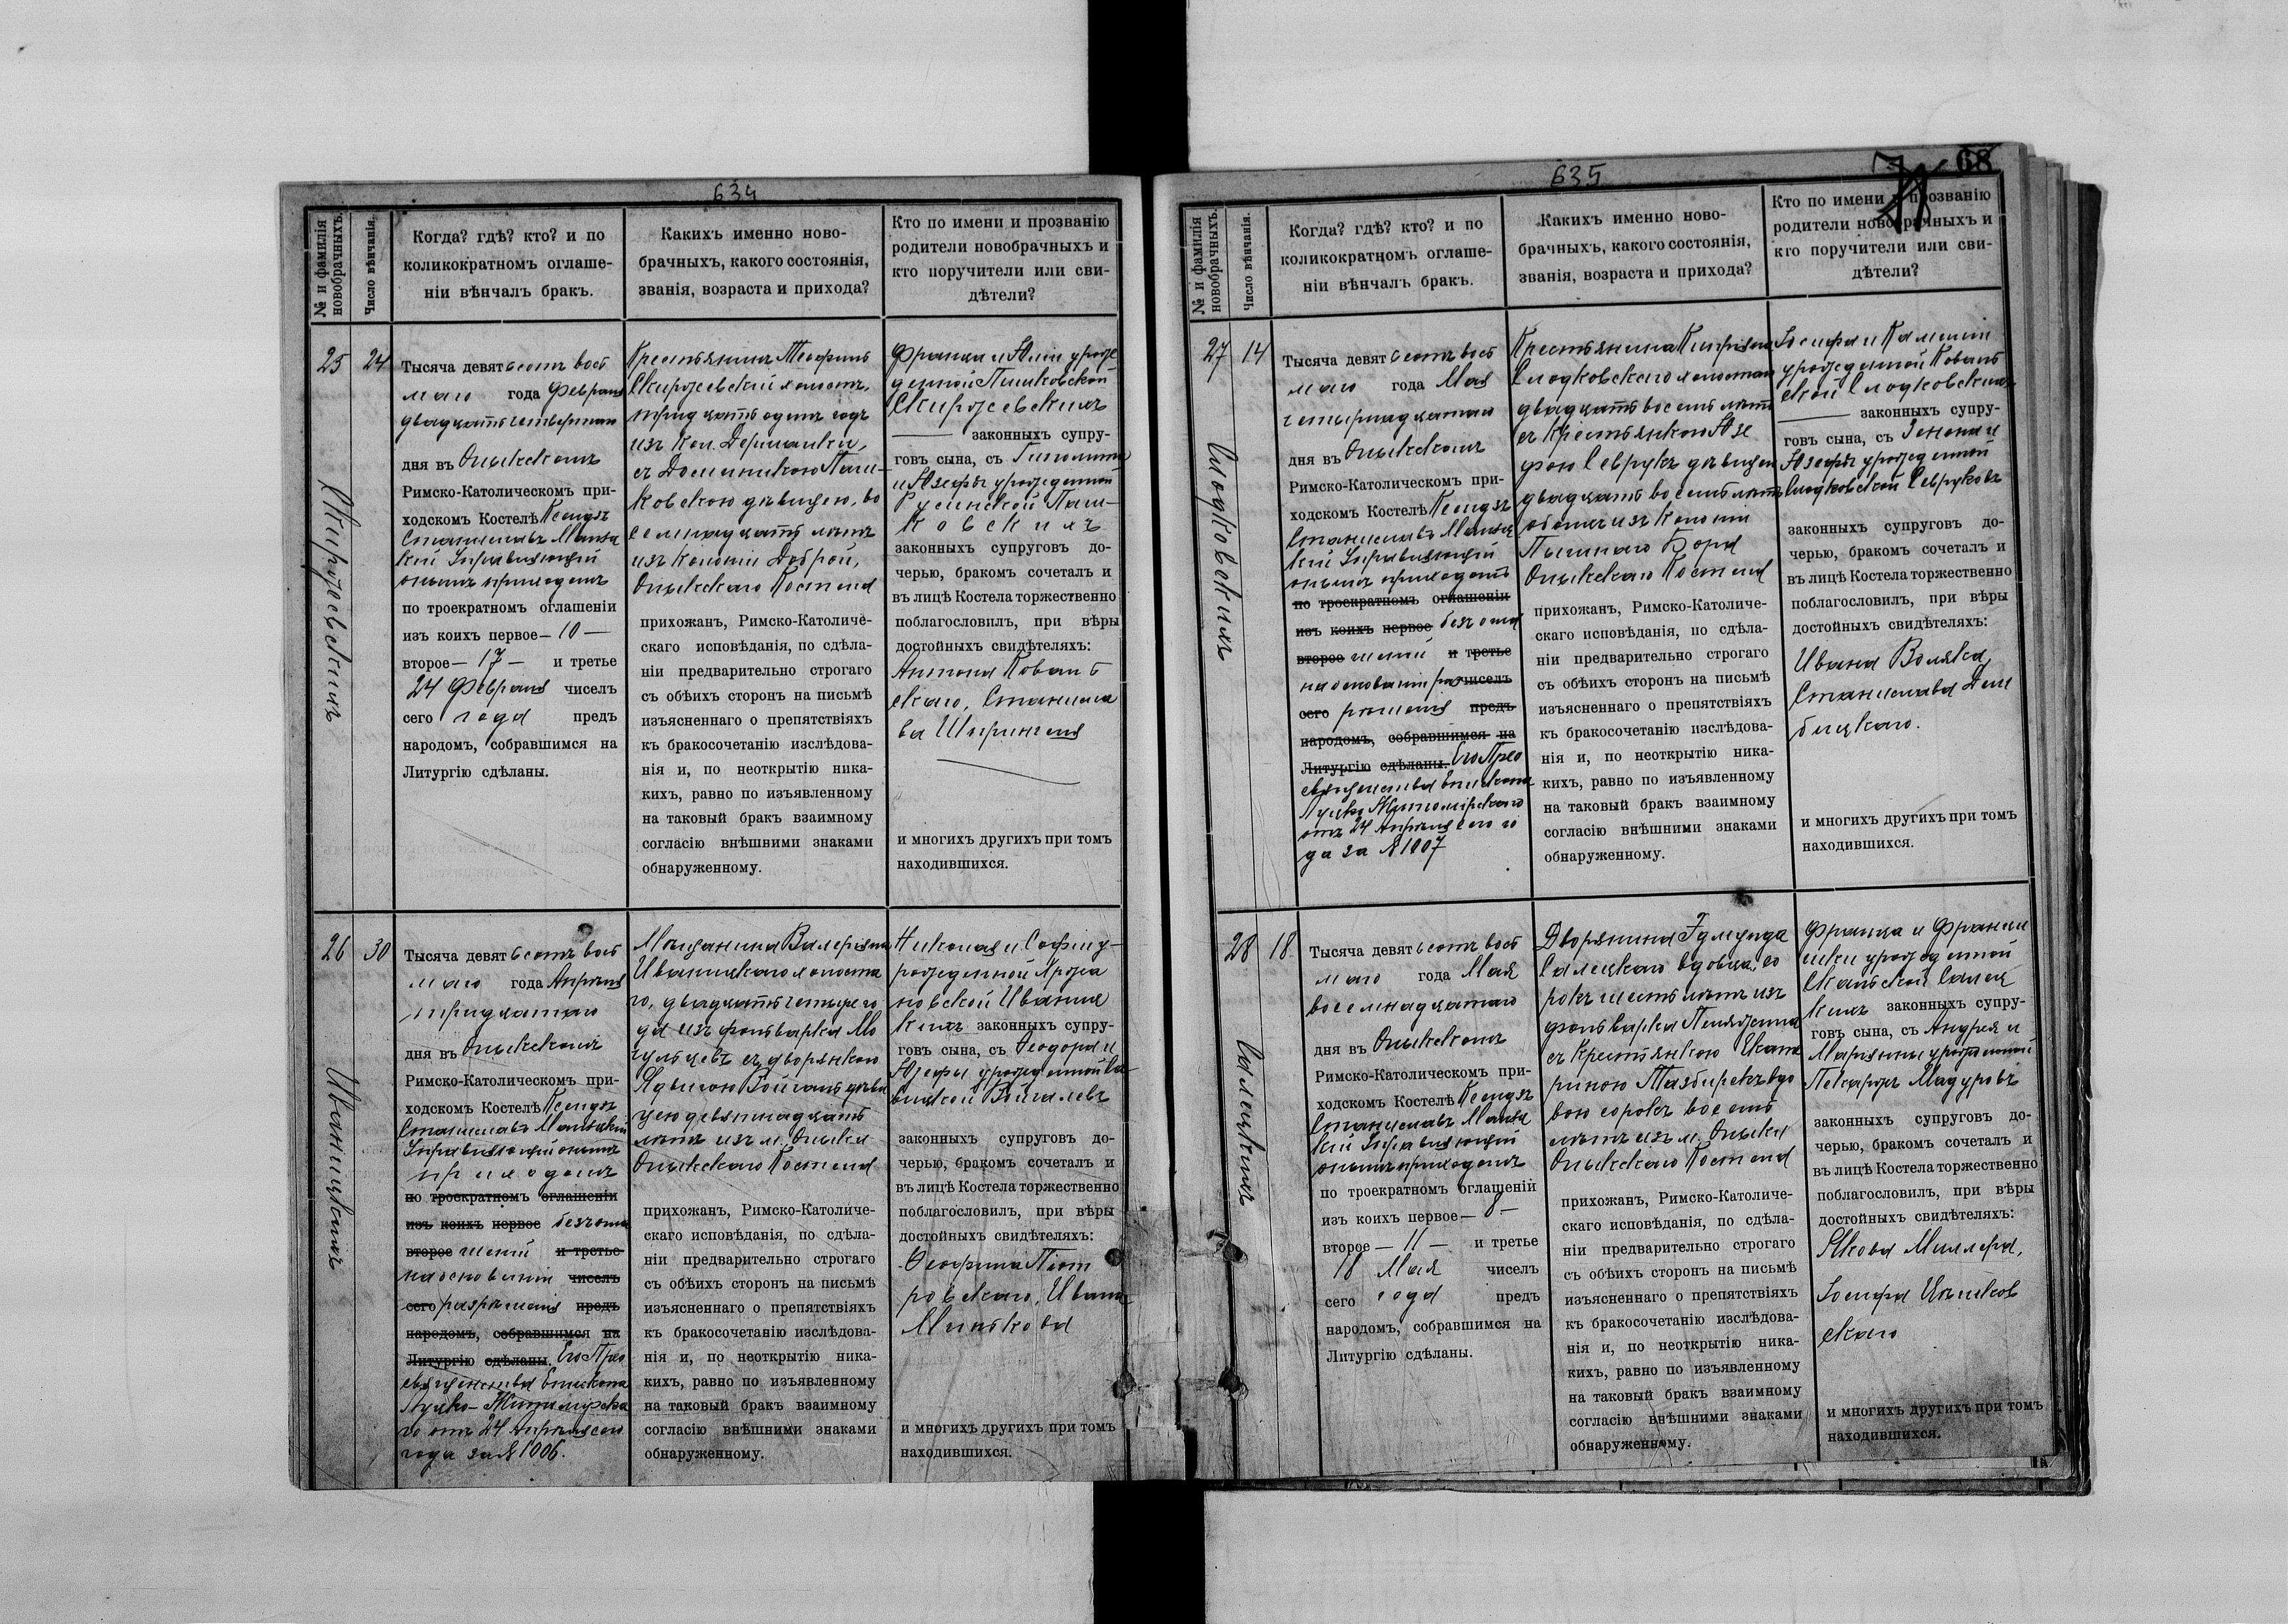 634
№ и фамилія
новобрачныхъ.
Число вѣнчанія.
Когда? гдѣ? кто? и по
коликократномъ оглаше-
ніи вѣнчалъ бракъ.
Какихъ именно ново-
брачныхъ, какого состоянія,
званія, возраста и прихода?
Кто по имени и прозванію
родители новобрачныхъ и
кто поручители или сви-
дѣтели?
25
24
Тысяча девятьсотъ вось
маго года Февраля
двадцать четвертаго
дня въ Олыкскомъ
Римско-Католическомъ при-
ходскомъ Костелѣ Ксендзъ
Станиславъ
кій Управляющій
онымъ приходомъ
по троекратномъ оглашеніи
изъ коихъ первое — 10 —
второе — 17 — и третье
24 Февраля чиселъ
сего года предъ
народомъ, собравшимся на
Литургію сдѣланы.
Крестьянинъ Теофилъ
холостъ,
тридцать одинъ годъ
изъ кол. Дерманки,
съ Доминикою Паш-
ковскою дѣвицею, во
семнадцать лѣтъ
изъ колоніи Доброй,
Олыкскаго Костела
прихожанъ, Римско-Католиче-
скаго исповѣданія, по сдѣла-
ніи предварительно строгаго
съ обѣихъ сторонъ на письмѣ
изъясненнаго о препятствіяхъ
къ бракосочетанію изслѣдова-
нія и, по неоткрытію ника-
кихъ, равно по изъявленному
на таковый бракъ взаимному
согласію внѣшними знаками
обнаруженному.
Франца и Юліи урож
денной
законныхъ супру-
говъ сына, съ Ипполита
и Юзефы урожденной
Русинской Паш-
ковскихъ
законныхъ супруговъ до-
черью, бракомъ сочеталъ и
въ лицѣ Костела торжественно
поблагословилъ, при вѣры
достойныхъ свидѣтеляхъ:
Антона Коваль
скаго, Станисла
ва Шпрингеля
и многихъ другихъ при томъ
находившихся.
26
30
Иваницкихъ
Тысяча девятьсотъ вось
маго года Апрѣля
тридцатаго
дня въ Олыкскомъ
Римско-Католическомъ при-
ходскомъ Костелѣ Ксендзъ
Станиславъ
Управляющій онымъ
приходомъ
по троекратномъ оглашеніи
изъ коихъ первое безъ огла
второе шеній и третье
на основаніи чиселъ
сего разрѣшенія предъ
народомъ, собравшимся на
Литургію сдѣланы. Его Прео
священства Епископа
Луцко-Житомірска
го отъ 24 Апрѣля сего
года за № 1006.
Мѣщанина Валеріана
Иваницкаго холоста
го, двадцать четыре го
да изъ фольварка
съ дворянкою
Ядвигою дѣви
цею девятнадцать
лѣтъ изъ м. Олыки
Олыкскаго Костела
прихожанъ, Римско-Католиче-
скаго исповѣданія, по сдѣла-
ніи предварительно строгаго
съ обѣихъ сторонъ на письмѣ
изъясненнаго о препятствіяхъ
къ бракосочетанію изслѣдова-
нія и, по неоткрытію ника-
кихъ, равно по изъявленному
на таковый бракъ взаимному
согласію внѣшними знаками
обнаруженному.
Николая и Софіи у-
рожденной
Иваниц
кихъ законныхъ супру-
говъ сына, съ Ѳеодора и
Юзефы урожденной
законныхъ супруговъ до-
черью, бракомъ сочеталъ и
въ лицѣ Костела торжественно
поблагословилъ, при вѣры
достойныхъ свидѣтеляхъ:
Ѳеофила Піот
ровскаго, Ивана
Минькова
и многихъ другихъ при томъ
находившихся.
635
68
№ и фамилія
новобрачныхъ.
Число вѣнчанія.
Когда? гдѣ? кто? и по
коликократномъ оглаше-
ніи вѣнчалъ бракъ.
Какихъ именно ново-
брачныхъ, какого состоянія,
званія, возраста и прихода?
Кто по имени и прозванію
родители новобрачныхъ и
кто поручители или сви-
дѣтели?
27
14
Слодковскихъ
Тысяча девятьсотъ вось
маго года Мая
четырнадцатаго
дня въ Олыкскомъ
Римско-Католическомъ при-
ходскомъ Костелѣ Ксендзъ
Станиславъ
кій Управляющій
онымъ приходомъ
по троекратномъ оглашеніи
изъ коихъ первое безъ огла
второе шеній и третье
на основаніи раз чиселъ
сего рѣшенія предъ
народомъ, собравшимся на
Литургію сдѣланы. Его Прео
священства Епископа
Луцко Житомірскаго
отъ 24 Апрѣля сего го
да за № 1007
Крестьянина Кипріяна
Слодковскаго холостаго
двадцать восемь лѣтъ
съ Крестьянкою Юзе
фою Севрукъ дѣвицею
двадцать восемь лѣтъ
обоихъ изъ Колоніи
Пьяннаго Бора
Олыкскаго Костела
прихожанъ, Римско-Католиче-
скаго исповѣданія, по сдѣла-
ніи предварительно строгаго
съ обѣихъ сторонъ на письмѣ
изъясненнаго о препятствіяхъ
къ бракосочетанію изслѣдова-
нія и, по неоткрытію ника-
кихъ, равно по изъявленному
на таковый бракъ взаимному
согласію внѣшними знаками
обнаруженному.
Іосифа и
урожденной Коваль
ской Слодковскихъ
законныхъ супру-
говъ сына, съ Зенона и
Юзефы урожденной
Слодковской Севруковъ
законныхъ супруговъ до-
черью, бракомъ сочеталъ и
въ лицѣ Костела торжественно
поблагословилъ, при вѣры
достойныхъ свидѣтеляхъ:
Ивана Воляка,
Станислава Дем
бицкаго.
и многихъ другихъ при томъ
находившихся.
28
18
Салецкихъ
Тысяча девятьсотъ вось
маго года Мая
восемнадцатаго
дня въ Олыкскомъ
Римско-Католическомъ при-
ходскомъ Костелѣ Ксендзъ
Станиславъ
кій Управляющій
онымъ приходомъ
по троекратномъ оглашеній
изъ коихъ первое — 8 —
второе — 11 — и третье
18 Мая чиселъ
сего года предъ
народомъ, собравшимся на
Литургію сдѣланы.
Дворянина Эдмунда
Салецкаго вдовца, со
рокъ шесть лѣтъ изъ
фольварка
съ Крестьянкою Екате
риною вдо
вою сорокъ восемь
лѣтъ изъ м. Олыки
Олыкскаго Костела
прихожанъ, Римско-Католиче-
скаго исповѣданія, по сдѣла-
ніи предварительно строгаго
съ обѣихъ сторонъ на письмѣ
изъясненнаго о препятствіяхъ
къ бракосочетанію изслѣдова-
нія и, по неоткрытію ника-
кихъ, равно по изъявленному
на таковый бракъ взаимному
согласію внѣшними знаками
обнаруженному.
Франца и Францис
шки урожденной
Скальской Салец
кихъ законныхъ супру-
говъ сына, съ Андрея и
Маріанны урожденной
Пекаржъ Мазуровъ
законныхъ супруговъ до-
черью, бракомъ сочеталъ и
въ лицѣ Костела торжественно
поблагословилъ, при вѣры
достойныхъ свидѣтеляхъ:
Якова Миллера,
Іосифа
скаго
и многихъ другихъ при томъ
находившихся.